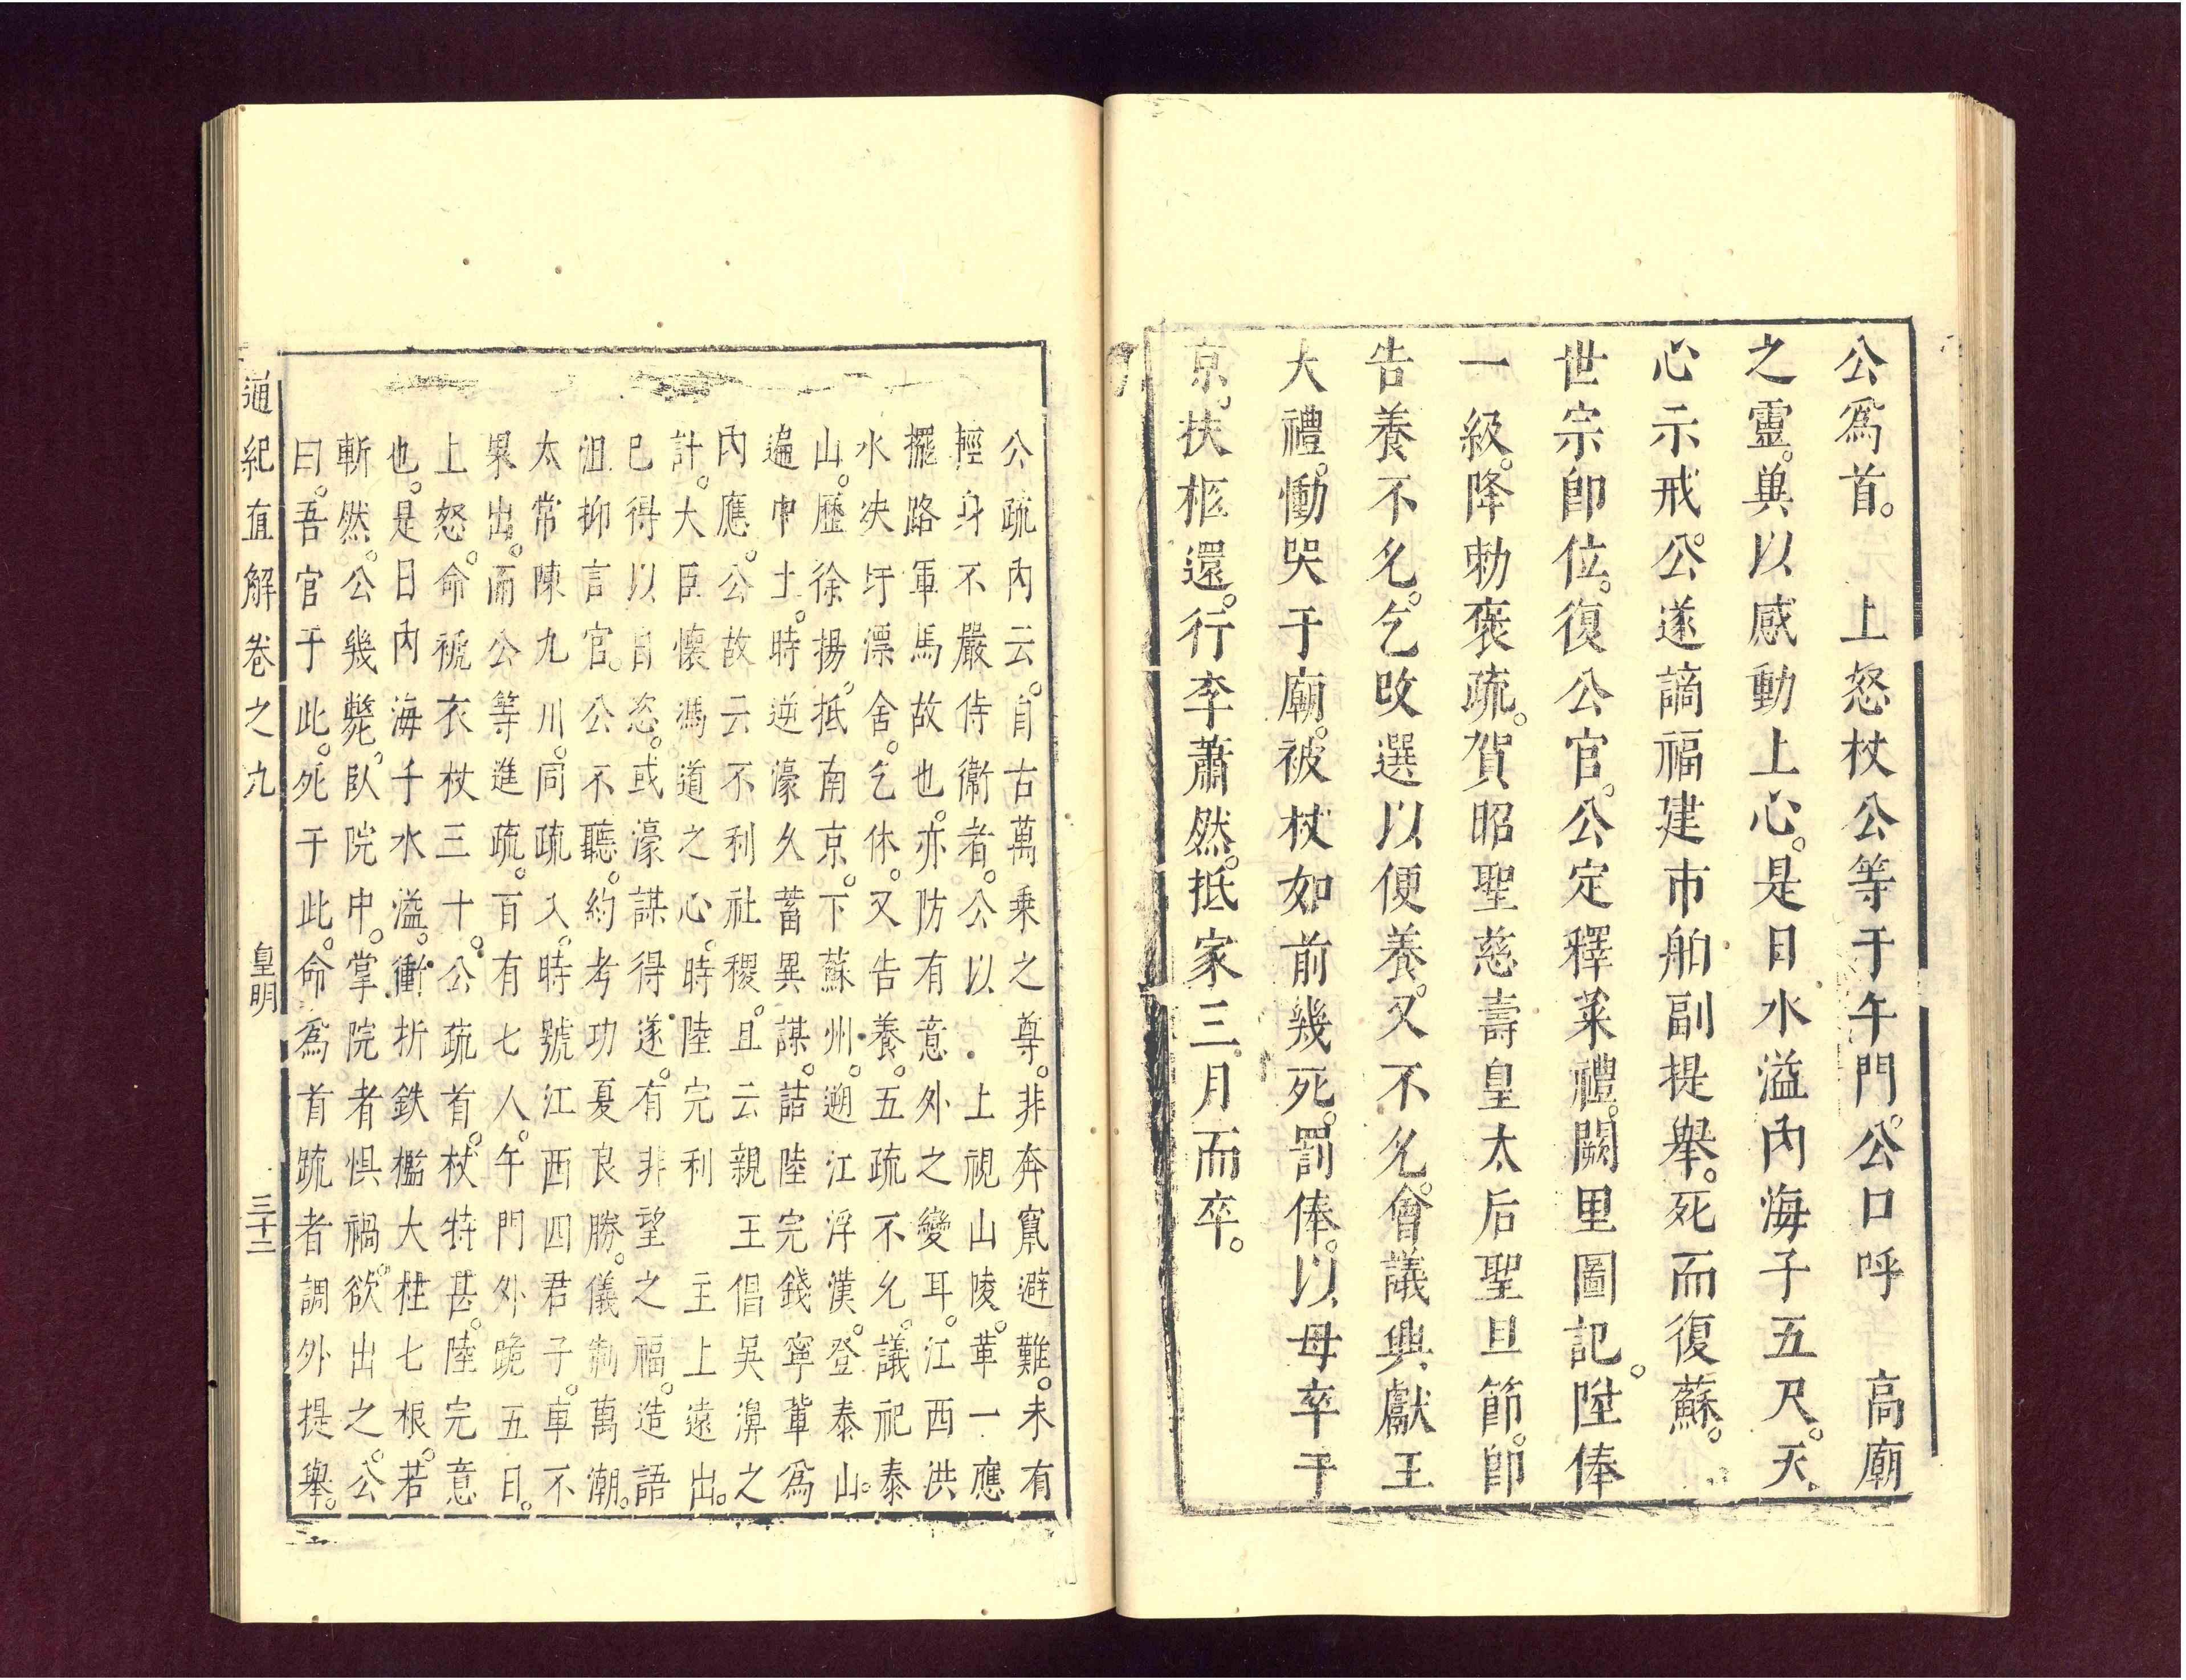 公爲首。　上怒杖公等于午門。公口呼　高廟
之靈。兾以感動上心。是日水溢內海子五尺。天。
心示戒公。遂謫福建市舶副提舉。死而復蘇。
世宗卽位。復公官。公定釋菜禮。闕里圖記。陞俸
一級。降勅褒疏。賀昭聖慈壽皇太后聖旦節。卽
告養不允。乞改選以便養。又不允。會議興獻王
大禮。慟哭于廟。被杖如前幾死。罰俸。以母卒于
京。扶柩還。行李蕭然。抵家三月而卒。
公疏內云。自古萬乘之尊。非奔竄避難。未有
輕身不嚴侍衞者。公以　上視山陵。革一應
擺路軍馬故也。亦防有意外之變耳。江西洪
水决圩漂舍。乞休。又告養。五疏不允。議祀泰
山。歷徐揚。抵南京。下蘇州。遡江浮漢。登泰山。
遍中土。時逆濠久蓄異謀。詰陸完錢寧輩爲
內應。公故云不利社稷。且云親王倡吳濞之
計。大臣懷馮道之心。時陸完利　主上遠出。
已得以自恣。或濠謀得遂。有非望之福。造語
沮抑言官。公不聽。約考功夏良勝。儀制萬潮。
太常陳九川。同疏入。時號江西四君子。車不
果出。而公等進疏。百有七人。午門外跪五日。
上怒。命褫衣杖三十。公疏首。杖特甚。陸完意
也。是日內海千水溢。衝折鉄檻大柱七根。若
斬然。公幾斃。臥院中。掌院者惧禍。欲出之。公
曰。吾官于此。死于此。命爲首䟽者調外提舉。
通紀直解卷之九　皇明　三十二